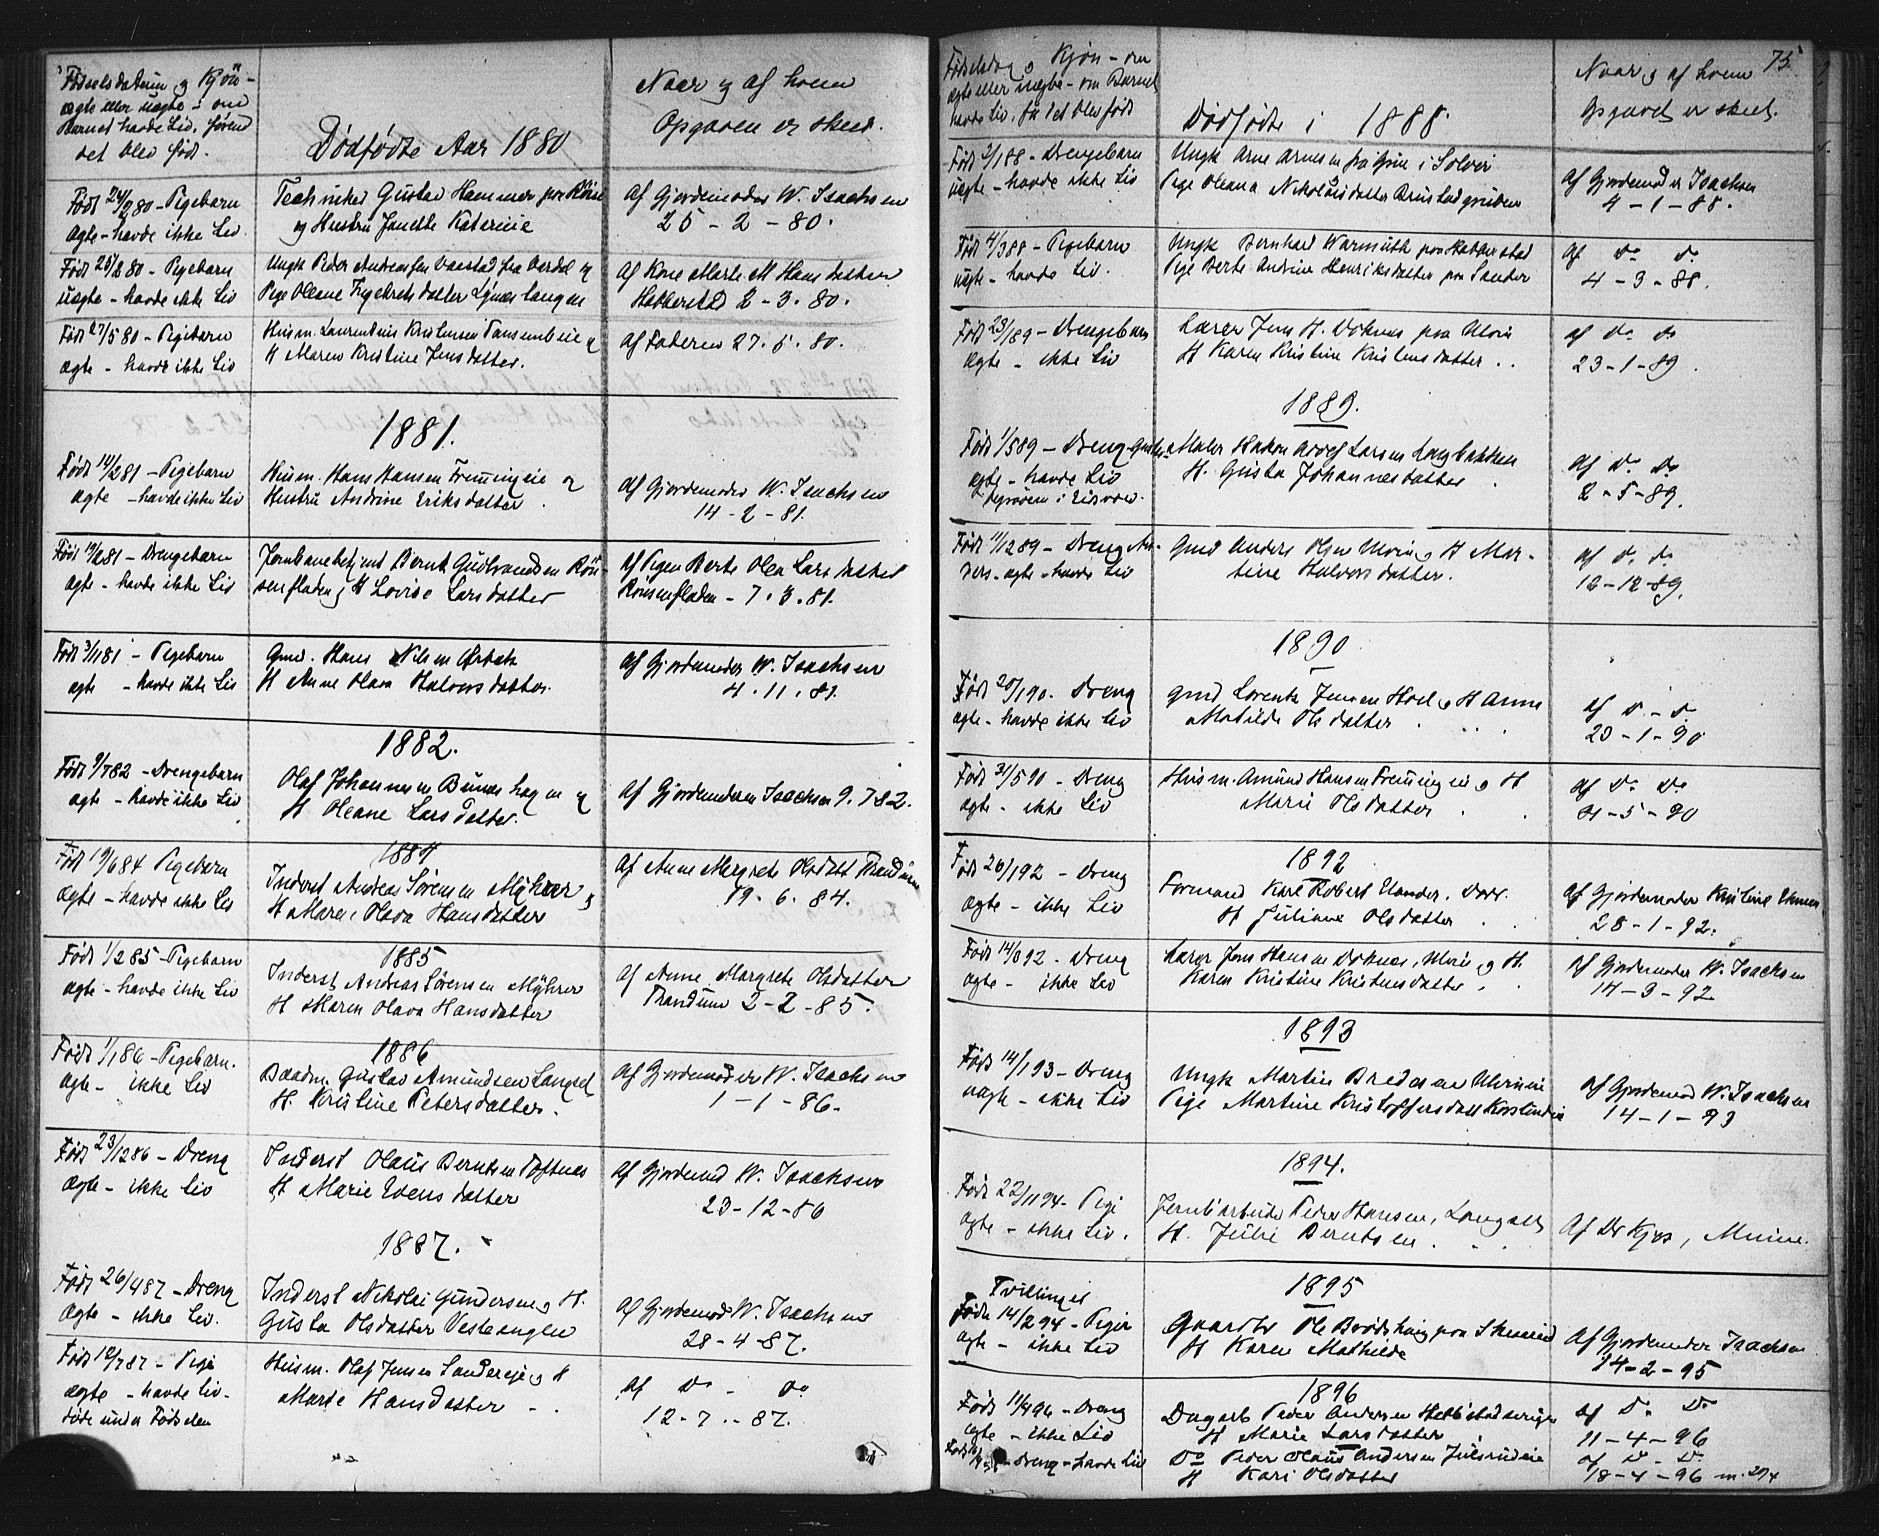 Fødselsdatum og Kjön -
ægte eller uægte - om
Barnet havde Liv, førend
det blev født.
Dødfødte Aar 1880
Naar og af hvem
Opgaven er skeed.
Født 24/2 80 - Pigebarn
ægte - havde ikke Liv
Techniker Gustav Hammer paa
og Hustru Janette Katarine
Af Gjordemoder W. Isachsen
25 - 2 - 80.
80 - Pigebarn
uægte - havde ikke Liv
Ungk Peder Andreassen fra og
Pige Oleane
Af Kone Marte M Hansdatter
2 - 3 . 80.
Født 27/5 80 - Pigebarn
ægte - havde ikke Liv
Husm. Laurentius Kristensen og
H Maren Kristine Jensdatter.
Af Faderen 27 . 5 . 80.
1881.
Født 14/2 81 - Pigebarn
ægte - havde ikke Liv
Husm. Hans Hansen og
Hustru Andrine Eriksdatter
Af Gjordemoder W. Isachsen
14 - 2 - 81.
Født 19/2 81 - Drengebarn
ægte - havde ikke Liv
Jernbanebetjent Bernt Gudbrandsen
og H Lovise Larsdatter
Af Pigen Berte Olea Larsdatter
- 7 . 3 . 81.
Født 3/11 81 - Pigebarn
ægte - havde ikke Liv
Gmd. Hans Nilsen Ørbæk
H Anne Olava Halvorsdatter.
Af Gjordemoder W. Isachsen
4 . 11 . 81.
1882.
Født 9/7 82 - Drengebarn
ægte - havde ikke Liv
Olaf Johannesen og
H Oleane Larsdatter.
Af Gjordemoderen Isachsen 9. 7 82.
1884
Født 19/6 84 Pigebarn
ægte - havde ikke Liv
Inderst Andreas Sørensen Myhrer og
H Maren Olava Hansdatter
Af Anne Margrete Olsdatt
19 . 6 . 84.
1885
Født 1/2 85 - Pigebarn
ægte - havde ikke Liv
Inderst Andreas Sørensen Myhrer
H Maren Olava Hansdatter
Af Anne Margrete Olsdatter
Trandum 2 - 2 - 85.
1886
Født 1/1 86 - Pigebarn.
ægte - ikke Liv
Baadm. Gustav Amundsen Langset
H. Kristine Petersdatter.
Af Gjordemoder W. Isachsen
1 - 1 - 86.
Født 23/12 86 - Dreng
ægte - ikke Liv
Inderst Olaus Berntsen Toftnes
H Marie Evensdatter
Af Gjordemod W. Isachsen
23 - 12 - 86
1887.
Født 26/4 87 - Dreng
ægte - ikke Liv.
Inderst Nikolai Gundersen og H.
Gusta Olsdatter Vesteengen
Af Gjordemod W. Isachsen
28 - 4 - 87.
Født 12/7 87 - Pige
ægte - havde Liv -
døde under Fødselen
Husm. Olaf Jensen Sandereje og H
Marte Hansdatter
Af Do - Do
12 - 7 - 87.
75
Fødselsdag og Kjøn - om
ægte eller uægte - om Barnet
havde Liv, før det blev født
Dødfødte i 1888.
Naar og af hvem
Opgavet er skeet.
Født 2/1 88 - Drengebarn
uægte - havde ikke Liv
Ungk Arne Arnesen fra i Solver
Pige Oleana Nikolaisdatter
Af Gjordemoder Isachsen
4 - 1 - 88.
Født 4/3 88 - Pigebarn
uægte - havde Liv.
Ungk Bernhard Warmuth paa
Pige Berte Andrine Henriksdatter paa Sander
Af Do Do
4 - 3 - 88.
Født 23/1 89 - Drengebarn
ægte - ikke Liv
Lærer Jens H. Doknes paa Morie
H Karen Kristine Kristensdatter
Af Do Do
23 - 1 - 89.
1889.
Født 1/5 89 - Dreng
ægte - havde Liv
Maler Hakon Adolf Larsen
H. Gusta Johannesdatter
Af Do Do
2 - 5 - 89.
Født 11/12 89 - Dreng An-
ders - ægte - havde Liv
Gmd Anders Olsen Morie og H Mar-
tine Halvorsdatter.
Af Do Do
12 - 12 - 89.
1890
Født 20/1 90. Dreng
ægte - havde ikke Liv
Gmd Lorents Jensen Hoel og H Anne
Matilde Olsdatter
Af D - D.
20 - 1 - 90
Født 31/5 90 - Dreng
ægte - ikke Liv
Husm. Amund Hansen og H
Marie Olsdatter
Af Do Do
31 - 5 - 90
1892
Født 26/1 92 - Dreng
ægte - ikke Liv
Formand Karl Robert
H Juliane Olsdatter
Af Gjordemoder Kristine
28 - 1 - 92.
Født 14/3 92 - Dreng
ægte - ikke Liv
Lærer Jens Hansen Doknes, Morie og H.
Karen Kristine Kristensdatter
Af Gjordemoder W. Isachsen
14 - 3 - 92
1893
Født 14/1 93 - Dreng
uægte - ikke Liv
Ungk Martin Bredesen
Pige Martine Kristoffersdatt
Af Gjordemod W. Isachsen
14 - 1 - 93
1894.
Født 22/11 94 - Pige
ægte - ikke Liv.
Jernb.arbeider Peder Hansen, Langset
H. Julie Berntsen
Af Dr Kjos, Minne.
1895
Tvillinger
Fødte 14/2 94 - Piger
ægte - ikke Liv
Gaardbr Ole
H Karen Mathilde
Af Gjordemoder Isachsen
14 - 2 - 95
1896
Født 11/4 96 - Dreng
ægte - ikke Liv
Dagarb Peder Andersen
H Marie Larsdatter
Af D. Do
11 - 4 - 96
Dreng - havde Liv
Do Peder Olaus Andersen Julsrudeie
H Kari Olsdatter
Af D - D.
18 - 4 - 96